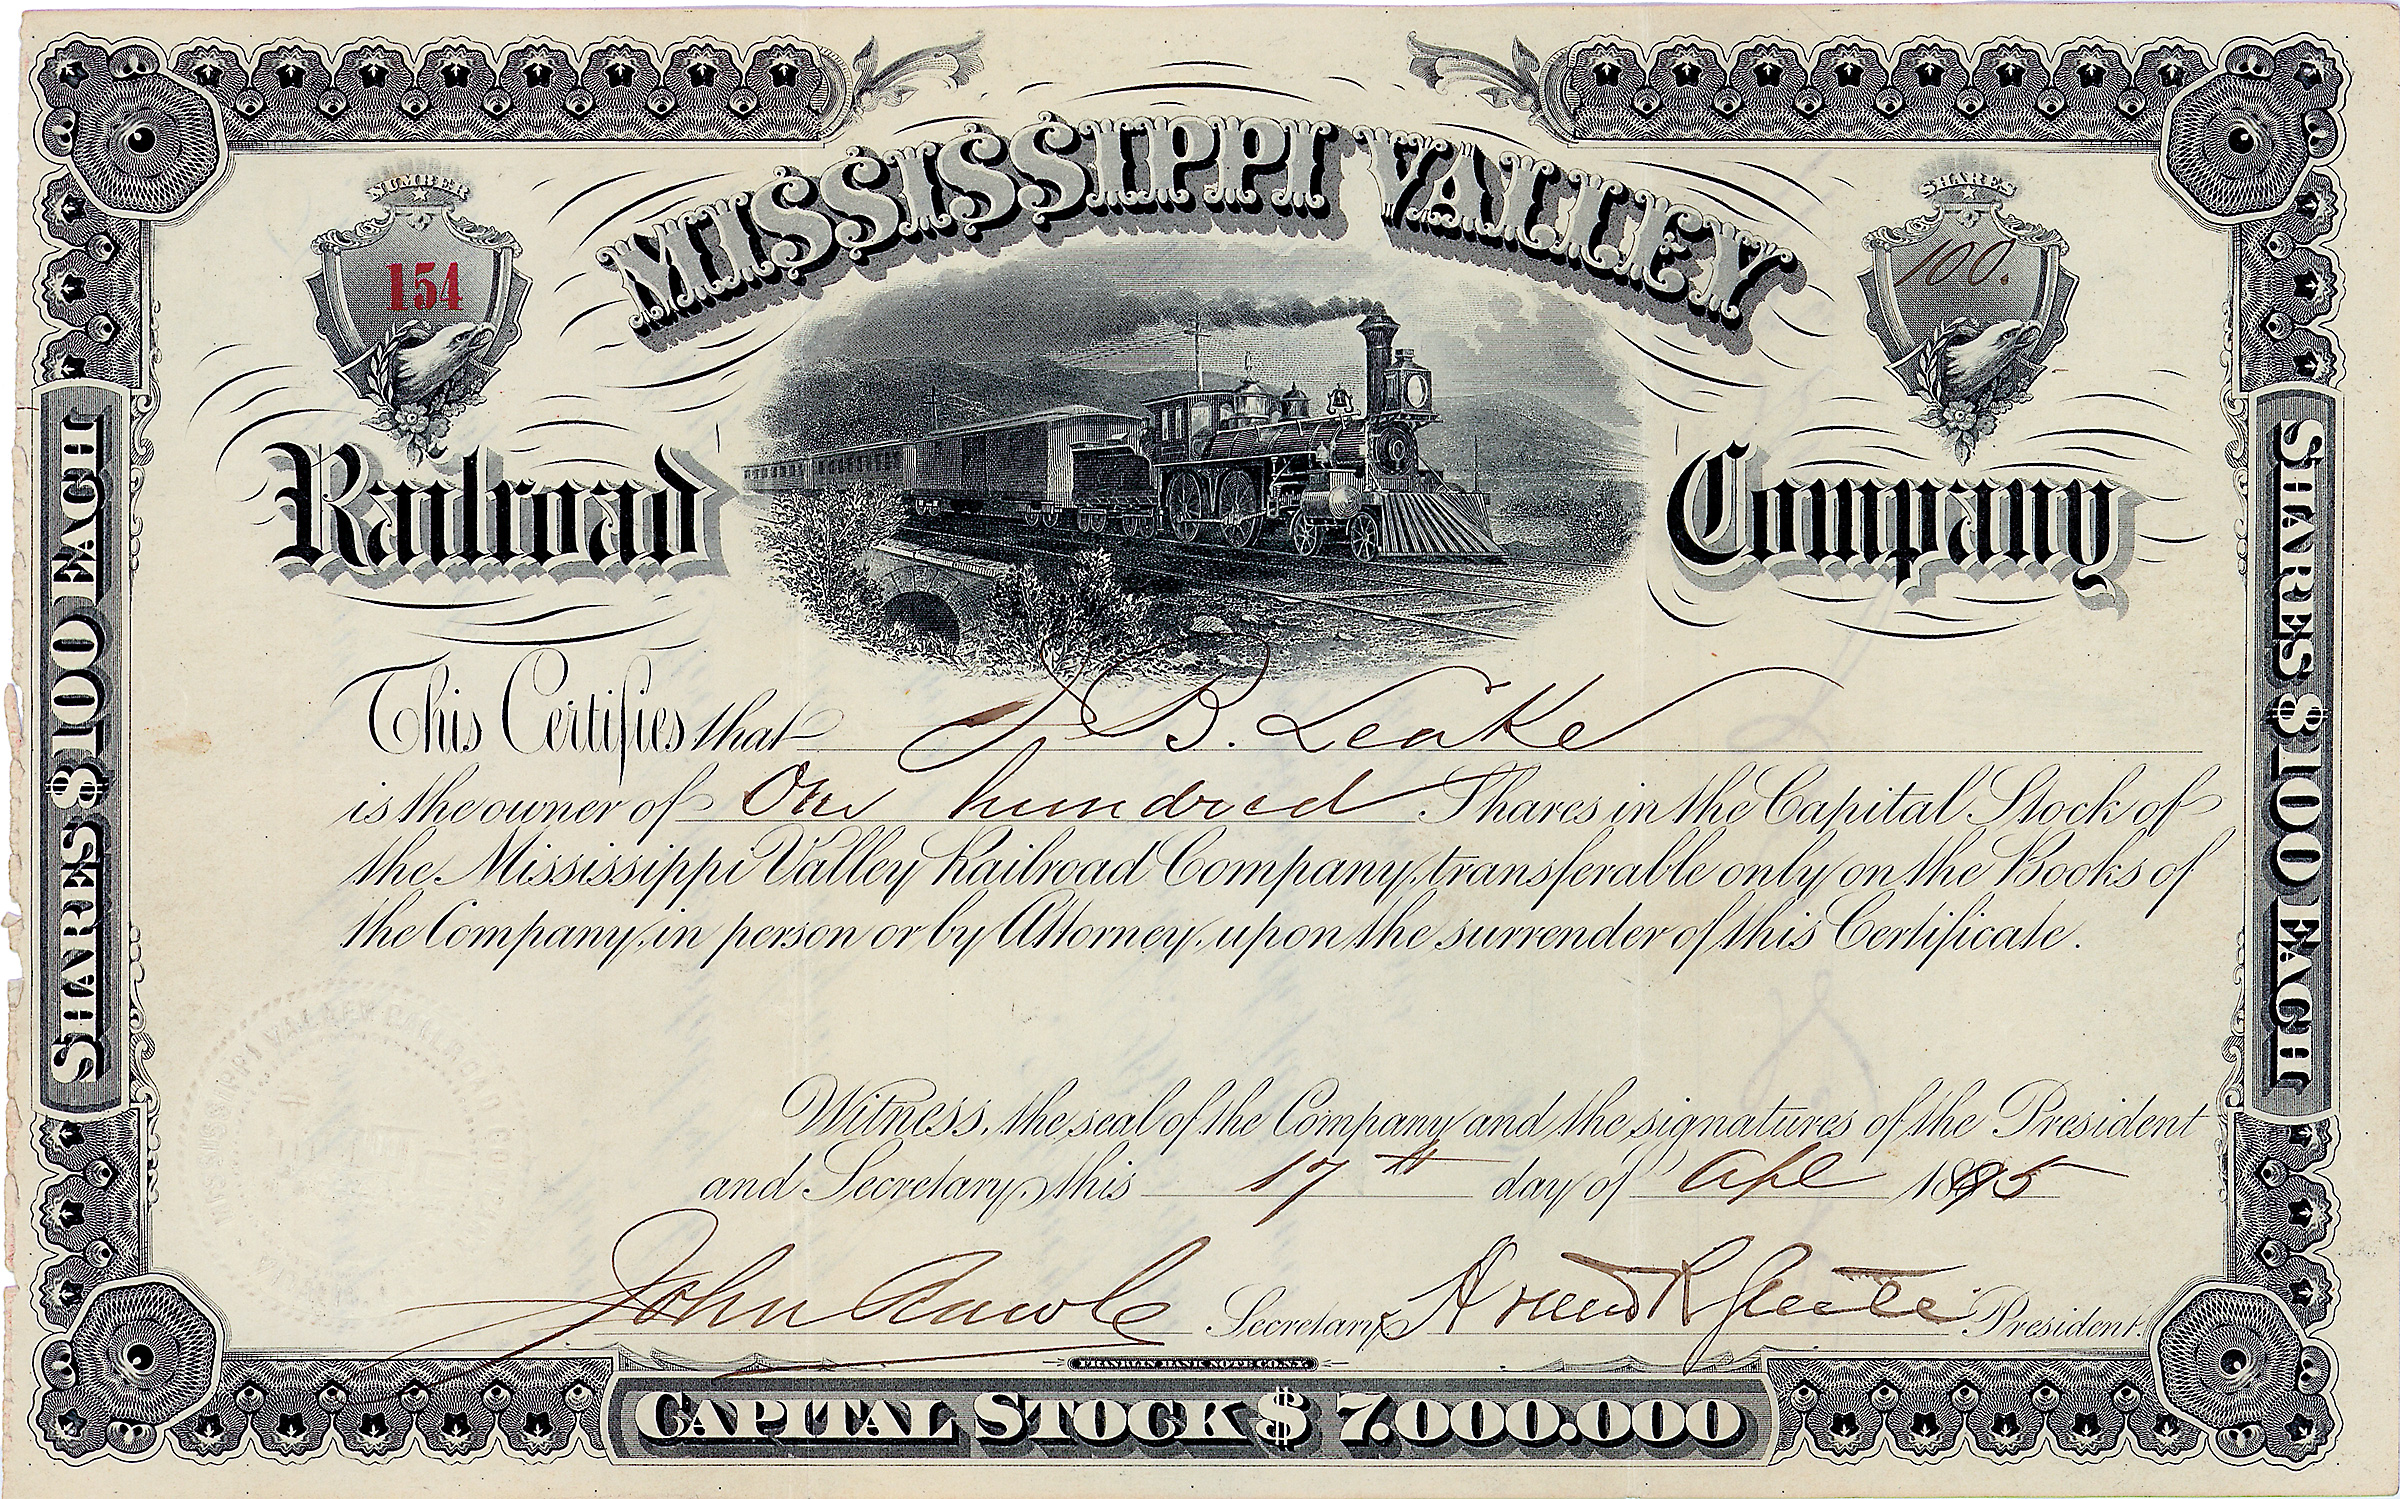 MISSISSIPPI VALLEY
NUMBER
154
SHARES
100.
Railroad Company
This Certifies that J B. Leake
is the owner of One hundred Shares in the Capital Stock of
the Mississippi Valley Railroad Company, transferable only on the Books of
the Company, in person or by Attorney, upon the surrender of this Certificate.
Witness, the seal of the Company and the signatures of the President
and Secretary, this 17th day of Apl 1895
John Rawle Secretary President.
FRANKLIN BANK NOTE CO. N.Y.
CAPITAL STOCK $7.000.000
SHARES $100 EACH
SHARES $100 EACH
MISSISSIPPI VALLEY RAILROAD CO